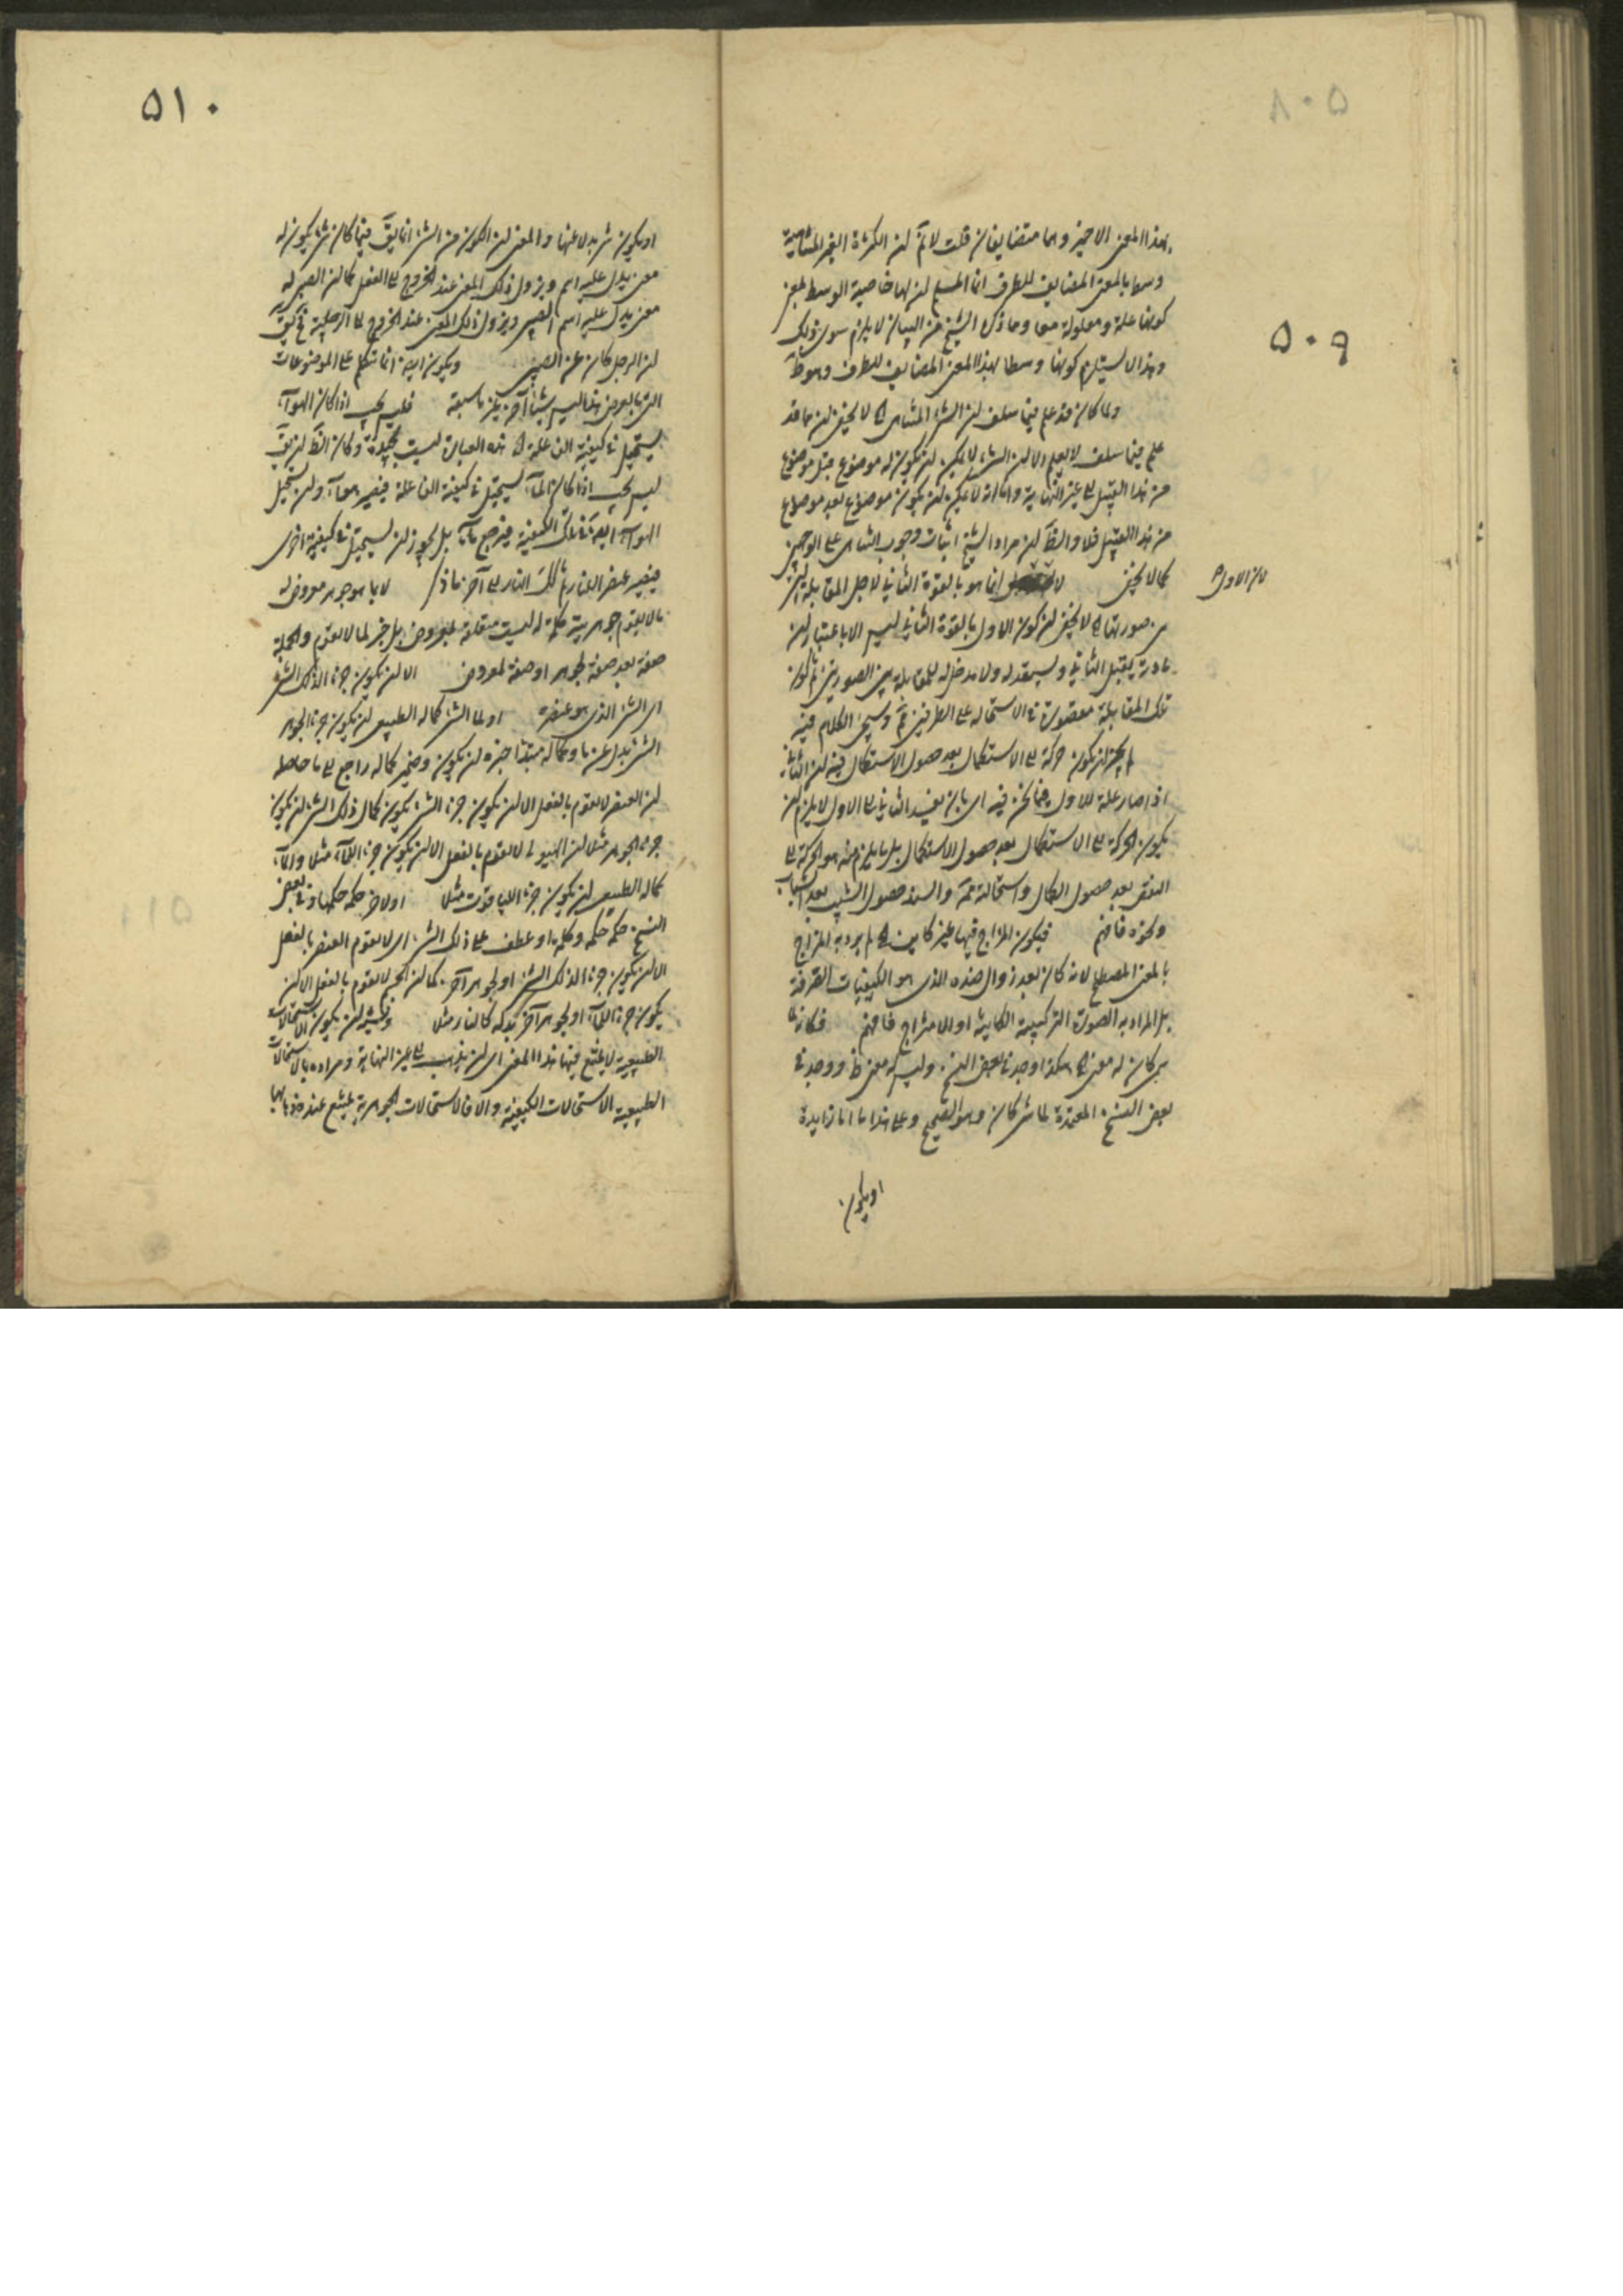 ۵۰۹
بهذا المعنى الاخير وهما متضايفان قلت لانم لن الكثرة الغير المتناهية
وسط بالمعنى المضايف للطرف انما المسلم لن لها خاصية الوسط بمعنى
كونها علة ومعلولة معا وما ذكر الشيخ من البيان لا يلزم سوى ذلك
وهذا لا يستلزم كونها وسطا بهذا المعنى المضايف للطرف وهو ظ
ولما كان قد علم فيما سلف لن الشئ المتناهى لا يخفى لن ما قد
علم فيما سلف لا يعلم الا لن الشئ لا يمكن لن يكون له موضوع قبل موضوع
من هذا القبيل الى غير النهاية واما انه لا يمكن لن يكون موضوع بعد موضوع
من هذا القبيل فلا والظ لن مراد الشيخ اثبات وجوب التناهى على الوجهين
كما لا يخفى لان الاول انما هو بالقوة الثانى لاجل المقابلة التى
بين صورتهما لا يخفى لن كون الاول بالقوة الثانى ليس الا باعتبار لن
مادته يقبل الثانى ويستعد له ولا مدخل له للمقابلة بين الصورتين ثم كون
تلك المقابلة مقصورة فى الاستحالة على الطرفين مم وسيجئ الكلام فيه
لم يجز لن يكون حركة الى الاستكمال بعد حصول الاستكمال فيه لن الثانى
اذا صار علة للاول فيما نحن فيه اى بان يفيد الثانى الى الاول لا يلزم لن
يكون الحركة الى الاستكمال بعد حصول الاستكمال بل ما يلزم منه هو الحركة الى
النقص بعد حصول الكمال واستحالته مم والسند حصول الشيب بعد الشباب
ونحوه فافهم فيكون المزاج فيها غير كاين لم يرد به المزاج
بالمعنى المصطلح لانه كان بعد زوال ضده الذى هو الكيفيات الصرفة
بل المراد به الصورة التركيبية الكاينة او الامتزاج فافهم فكانما
شئ كان له معنى هكذا وجدنا بعض النسخ وليس له معنى ظ ووجد فى
بعض النسخ المعتمدة لما شئ كان وهو الصحيح وعلى هذا ما اما زايدة
او يكون
۵۱۰
او يكون شئ بدلا عنها والمعنى لن الكون من الشئ انما يق فيما كان شئ يكون له
معنى يدل عليه اسم ويزول ذلك المعنى عند الخروج الى الفعل كما لن الصبى له
معنى يدل عليه اسم الصبى ويزول ذلك المعنى عند الخروج الى الرجلية فح يق
لن الرجل كان عن الصبى ويكون ايض انما تتكلم على الموضوعات
التى بالعرض هذا ليس شيئا آخر غير ما سبقه فليس يجب اذا كان الهواء
يستحيل فى كيفيته الفاعلة هذه العبارة ليست بجيدة وكان الظ لن يق
ليس يجب اذا كان الماء يستحيل فى كيفيته الفاعلة فيصير هواء ولن يستحيل
الهواء ايض فى تلك الكيفية فيرجع ماء بل يجوز لن يستحيل فى كيفيته اخرى
فيصير عنصر النار ثم كك النار الى آخر ما ذكر لا ما هو جوهر معروض له
ما لا يقوم جوهريته كلمة له ليست متعلقة بمعروض بل خبر لما لا يقوم والجملة
صفة بعد صفة لجوهر او صفة لمعروض الا لن يكون جزءا لذلك الشئ
اى الشئ الذى هو عنصره او لما الشئ كماله الطبيعى لن يكون جزءا لجوهر
الشئ بدل عن ما وكماله مبتدا خبره لن يكون وضمير كماله راجع الى ما حاصله
لن العنصر لا يقوم بالفعل الا لن يكون جزء الشئ يكون كمال ذلك الشئ لن يكون
جزء الجوهر مثلا لن الهيولى لا يقوم بالفعل الا لن يكون جزءا للماء مثلا والماء
كماله الطبيعى لن يكون جزءا للياقوت مثلا او لاخر حكمه حكمها وفى بعض
النسخ حكمه حكمه وكلمة او عطف على ذلك الشئ اى لا يقوم العنصر بالفعل
الا لن يكون جزءا لذلك الشئ او لجوهر آخر كما لن الجسم لا يقوم بالفعل الا لن
يكون جزءا للماء او لجوهر آخر بدله كالنار مثلا ويشبه لن يكون الاستحالات
الطبيعية لا يمتنع فيها هذا المعنى اى لن يذهب الى غير النهاية ومراده بالاستحالات
الطبيعية الاستحالات الكيفية والا فالاستحالات الجوهرية يمتنع عنده ذهابها